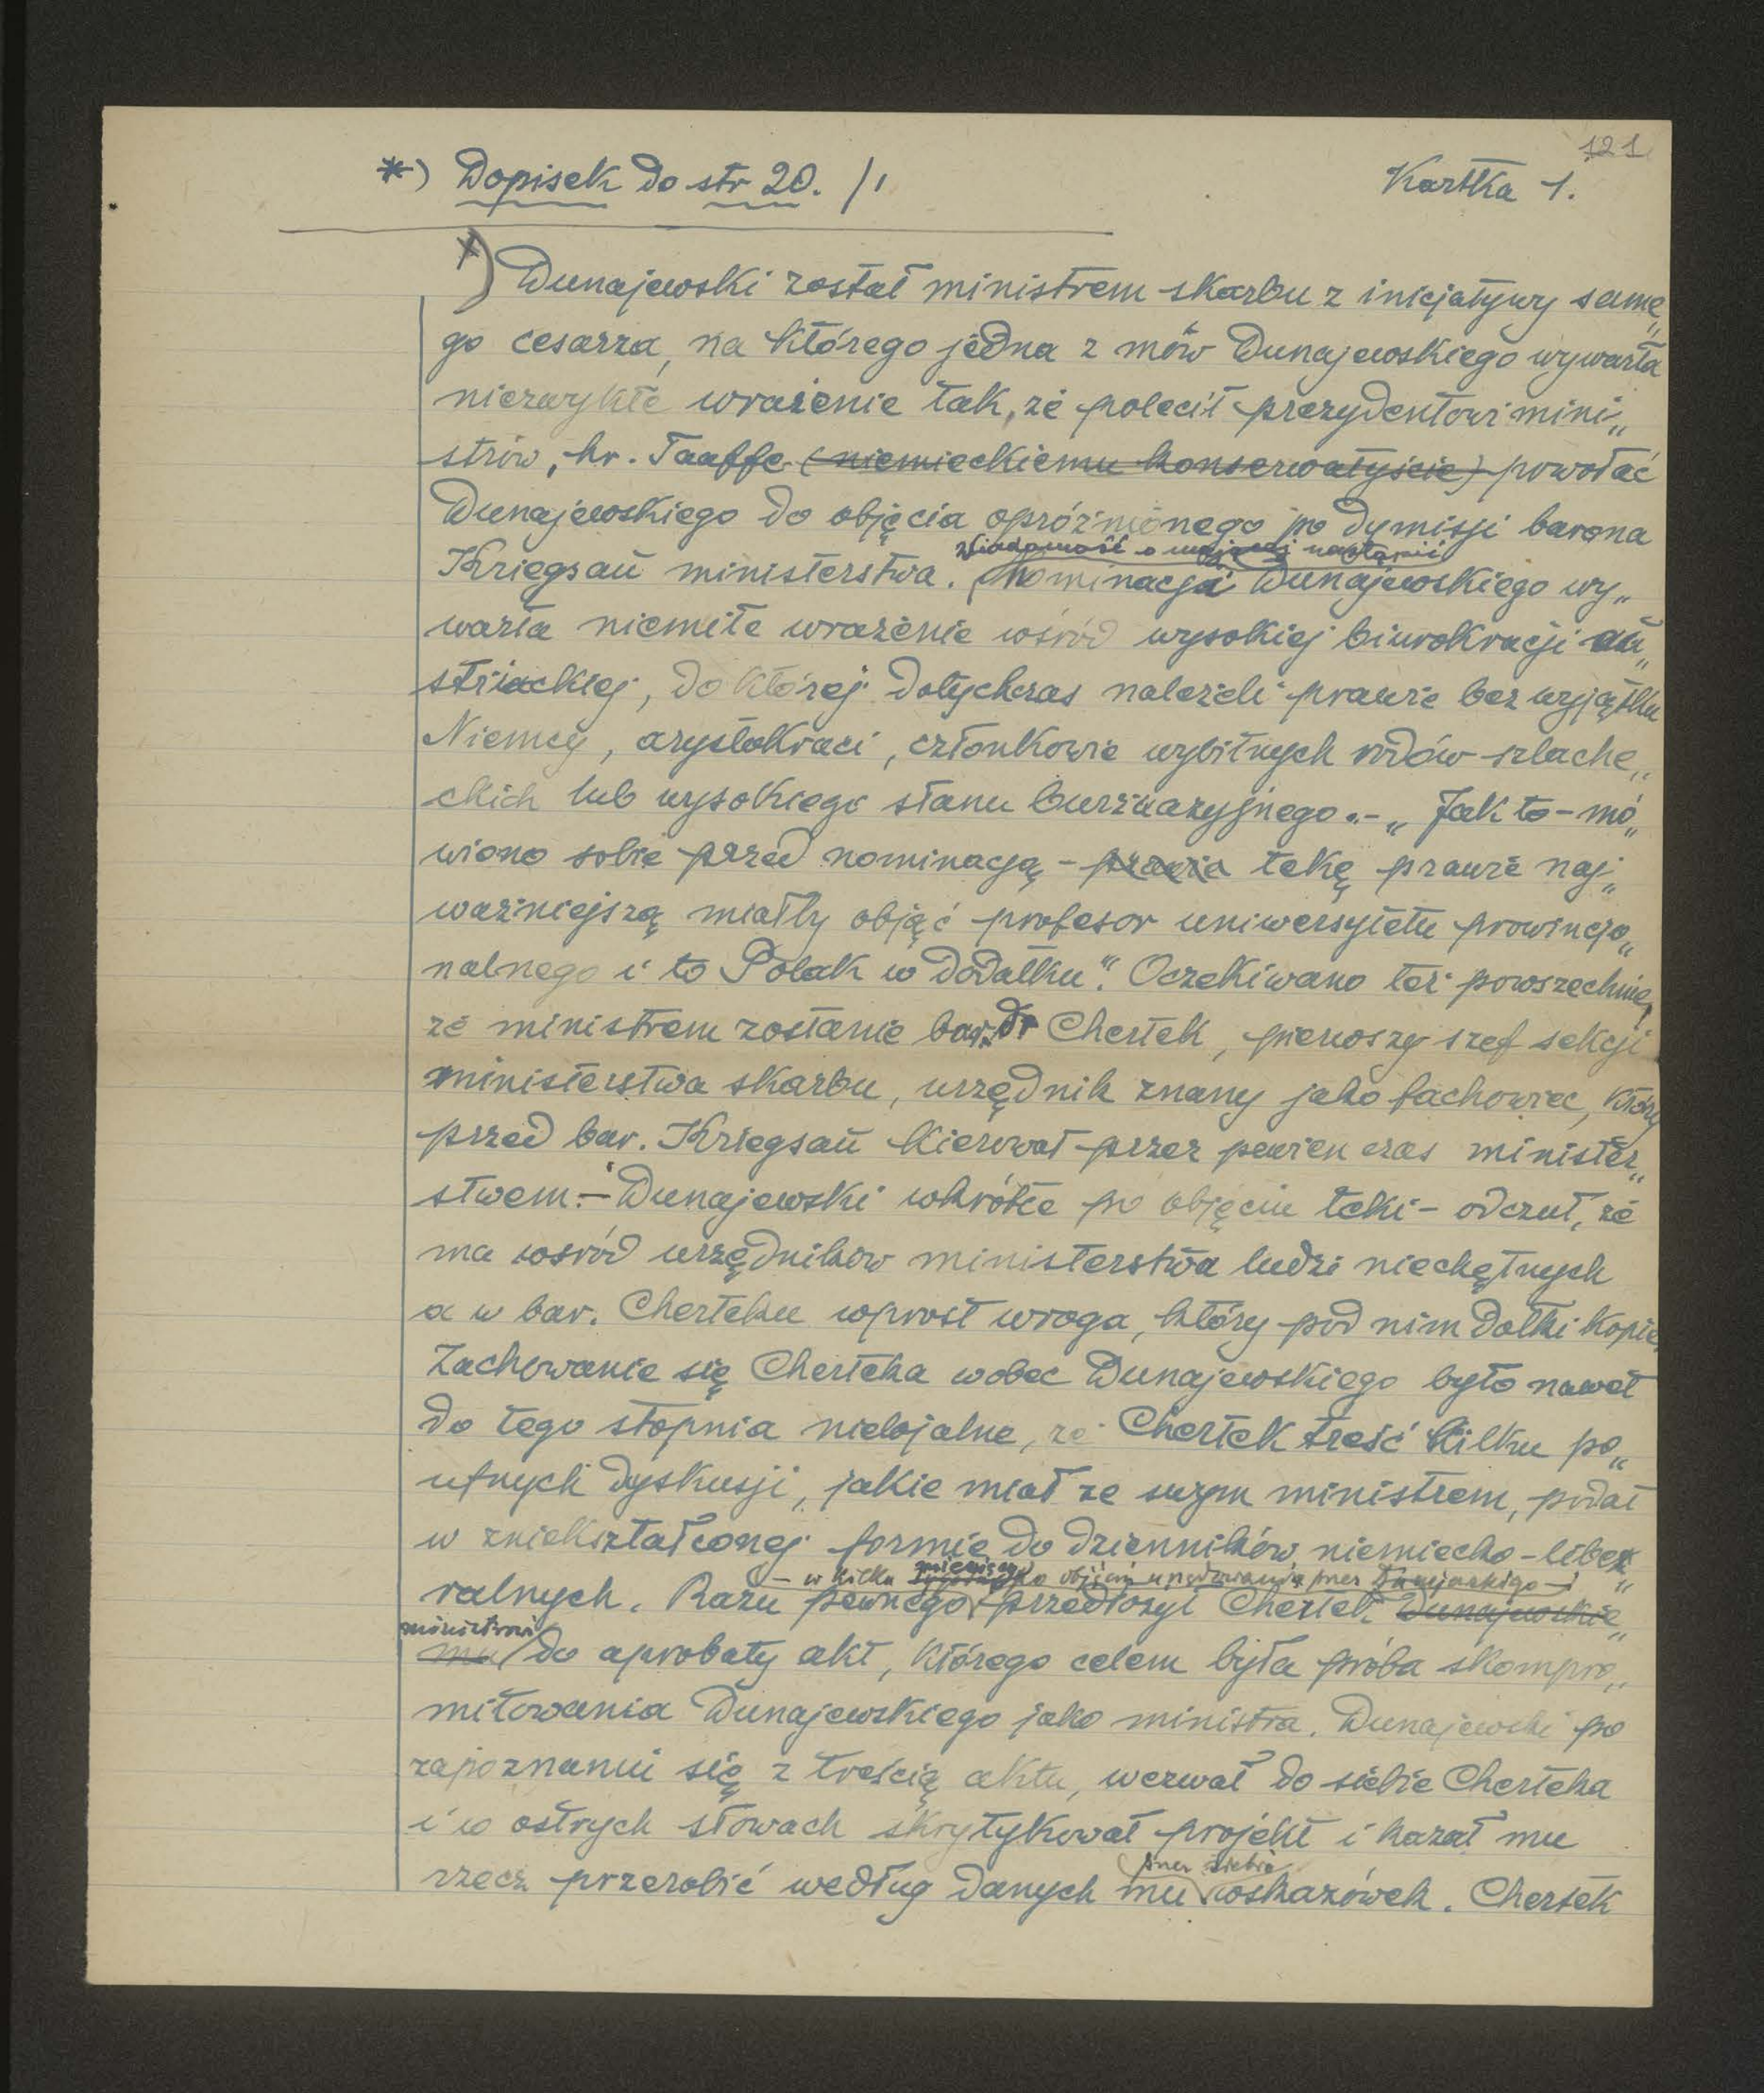 121
*) Dopisek do str 20. /1
Kartka 1.
x) Dunajewski został ministrem skarbu z inicjatywy same„
go cesarza, na którego jedna z mów Dunajewskiego wywarła
niezwykłe wrażenie tak, że polecił prezydentowi mini„
strów, hr. Taaffe (niemieckiemu konserwatyście) powołać
Dunajewskiego do objęcia opróżnionego po dymisji barona
wiadomość o mającej nastąpić
Kriegsaü ministerstwa. nominacja Dunajewskiego wy„
warła niemiłe wrażenie wśród wysokiej biurokracji au„
striackiej, do której dotychczas należeli prawie bez wyjątku
Niemcy, arystokraci, członkowie wybitnych rodów szlache„
ckich lub wysokiego stanu burżuazyjnego.- „Jak to - mó„
wiono sobie przed nominacją - prawie tekę prawie naj„
ważniejszą miałby objąć profesor uniwersytetu prowincjo„
nalnego i to Polak w dodatku". Oczekiwano też powszechnie,
że ministrem zostanie bar. dr Chertek, pierwszy szef sekcji
ministerstwa skarbu, urzędnik znany jako fachowiec, który
przed bar. Kriegsaü kierował przez pewien czas minister„
stwem.- Dunajewski wkrótce po objęciu teki - odczuł, że
ma wśród urzędników ministerstwa ludzi niechętnych
a w bar. Cherteku wprost wroga, który pod nim dołki kopie.
Zachowanie się Cherteka wobec Dunajewskiego było nawet
do tego stopnia nielojalne, że Chertek treść kilku po„
ufnych dyskusji, jakie miał ze swym ministrem, podał
w zniekształconej formie do dzienników niemiecko-libe„
- w kilka miesięcy po objęciu urzędowania przez Dunajewskiego -
ralnych. Razu pewnego przedłożył Chertek Dunajewskie„
ministrowi
mu do aprobaty akt, którego celem była próba skompro„
mitowania Dunajewskiego jako ministra. Dunajewski po
zapoznaniu się z treścią aktu, wezwał do siebie Cherteka
i w ostrych słowach skrytykował projekt i kazał mu
przez siebie
rzecz przerobić według danych mu wskazówek. Chertek